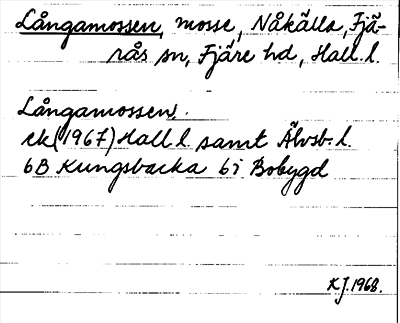 Långamossen, mosse, Nåkälla, Fjä-
rås sn, Fjäre hd, Hall. l.
Långamossen.
ek (1967) Hall l. samt Älvsb. l.
6B Kungsbacka 6i Bobygd
KJ. 1968.